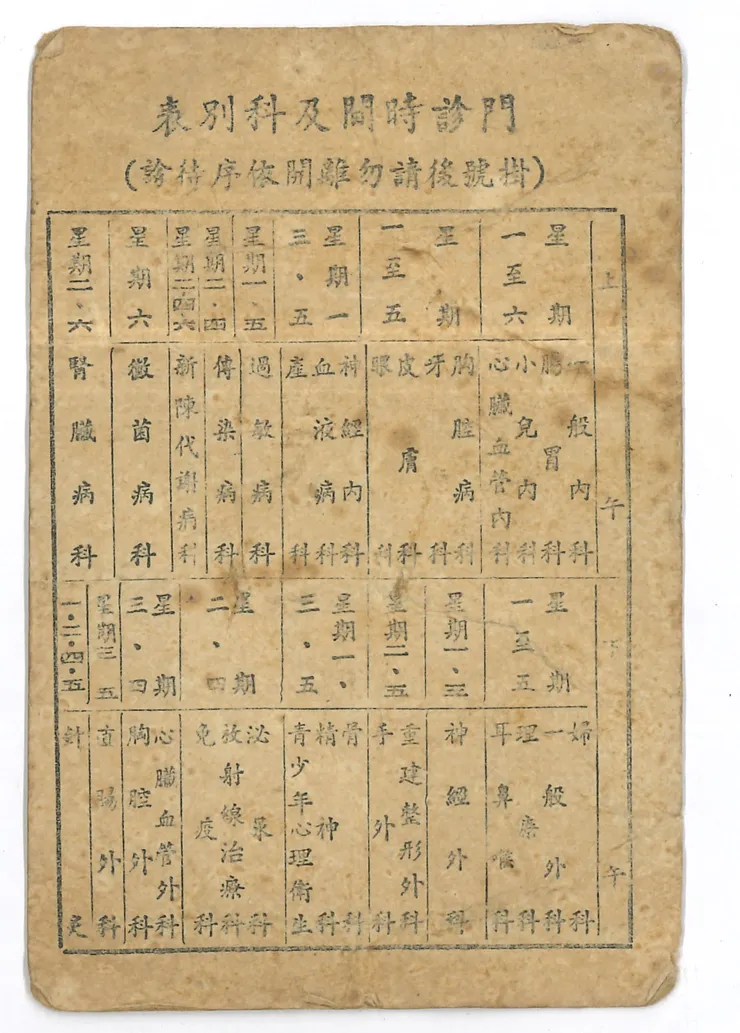 門診時間及科別表
(掛號後請勿離開依序待診)
上午
星期一至六
一般內科
腸胃科
小兒內科
心臟血管內科
星期一至五
胸腔病科
牙科
皮膚科
眼科
星期一、三、五
神經內科
血液病科
產科
星期一、五
過敏病科
星期二、四
傳染病科
星期二、四六
新陳代謝病科
星期六
黴菌病科
星期二、六
腎臟病科
下午
星期一至五
婦科
一般外科
理療科
耳鼻喉科
星期一、三
神經外科
星期二、五
重建整形外科
手外科
星期一、三、五
骨科
精神科
青少年心理衛生
星期二、四
泌尿科
放射線治療科
免疫科
星期三、四
心臟血管外科
胸腔外科
星期三五
直腸外科
一.二.四.五
針灸